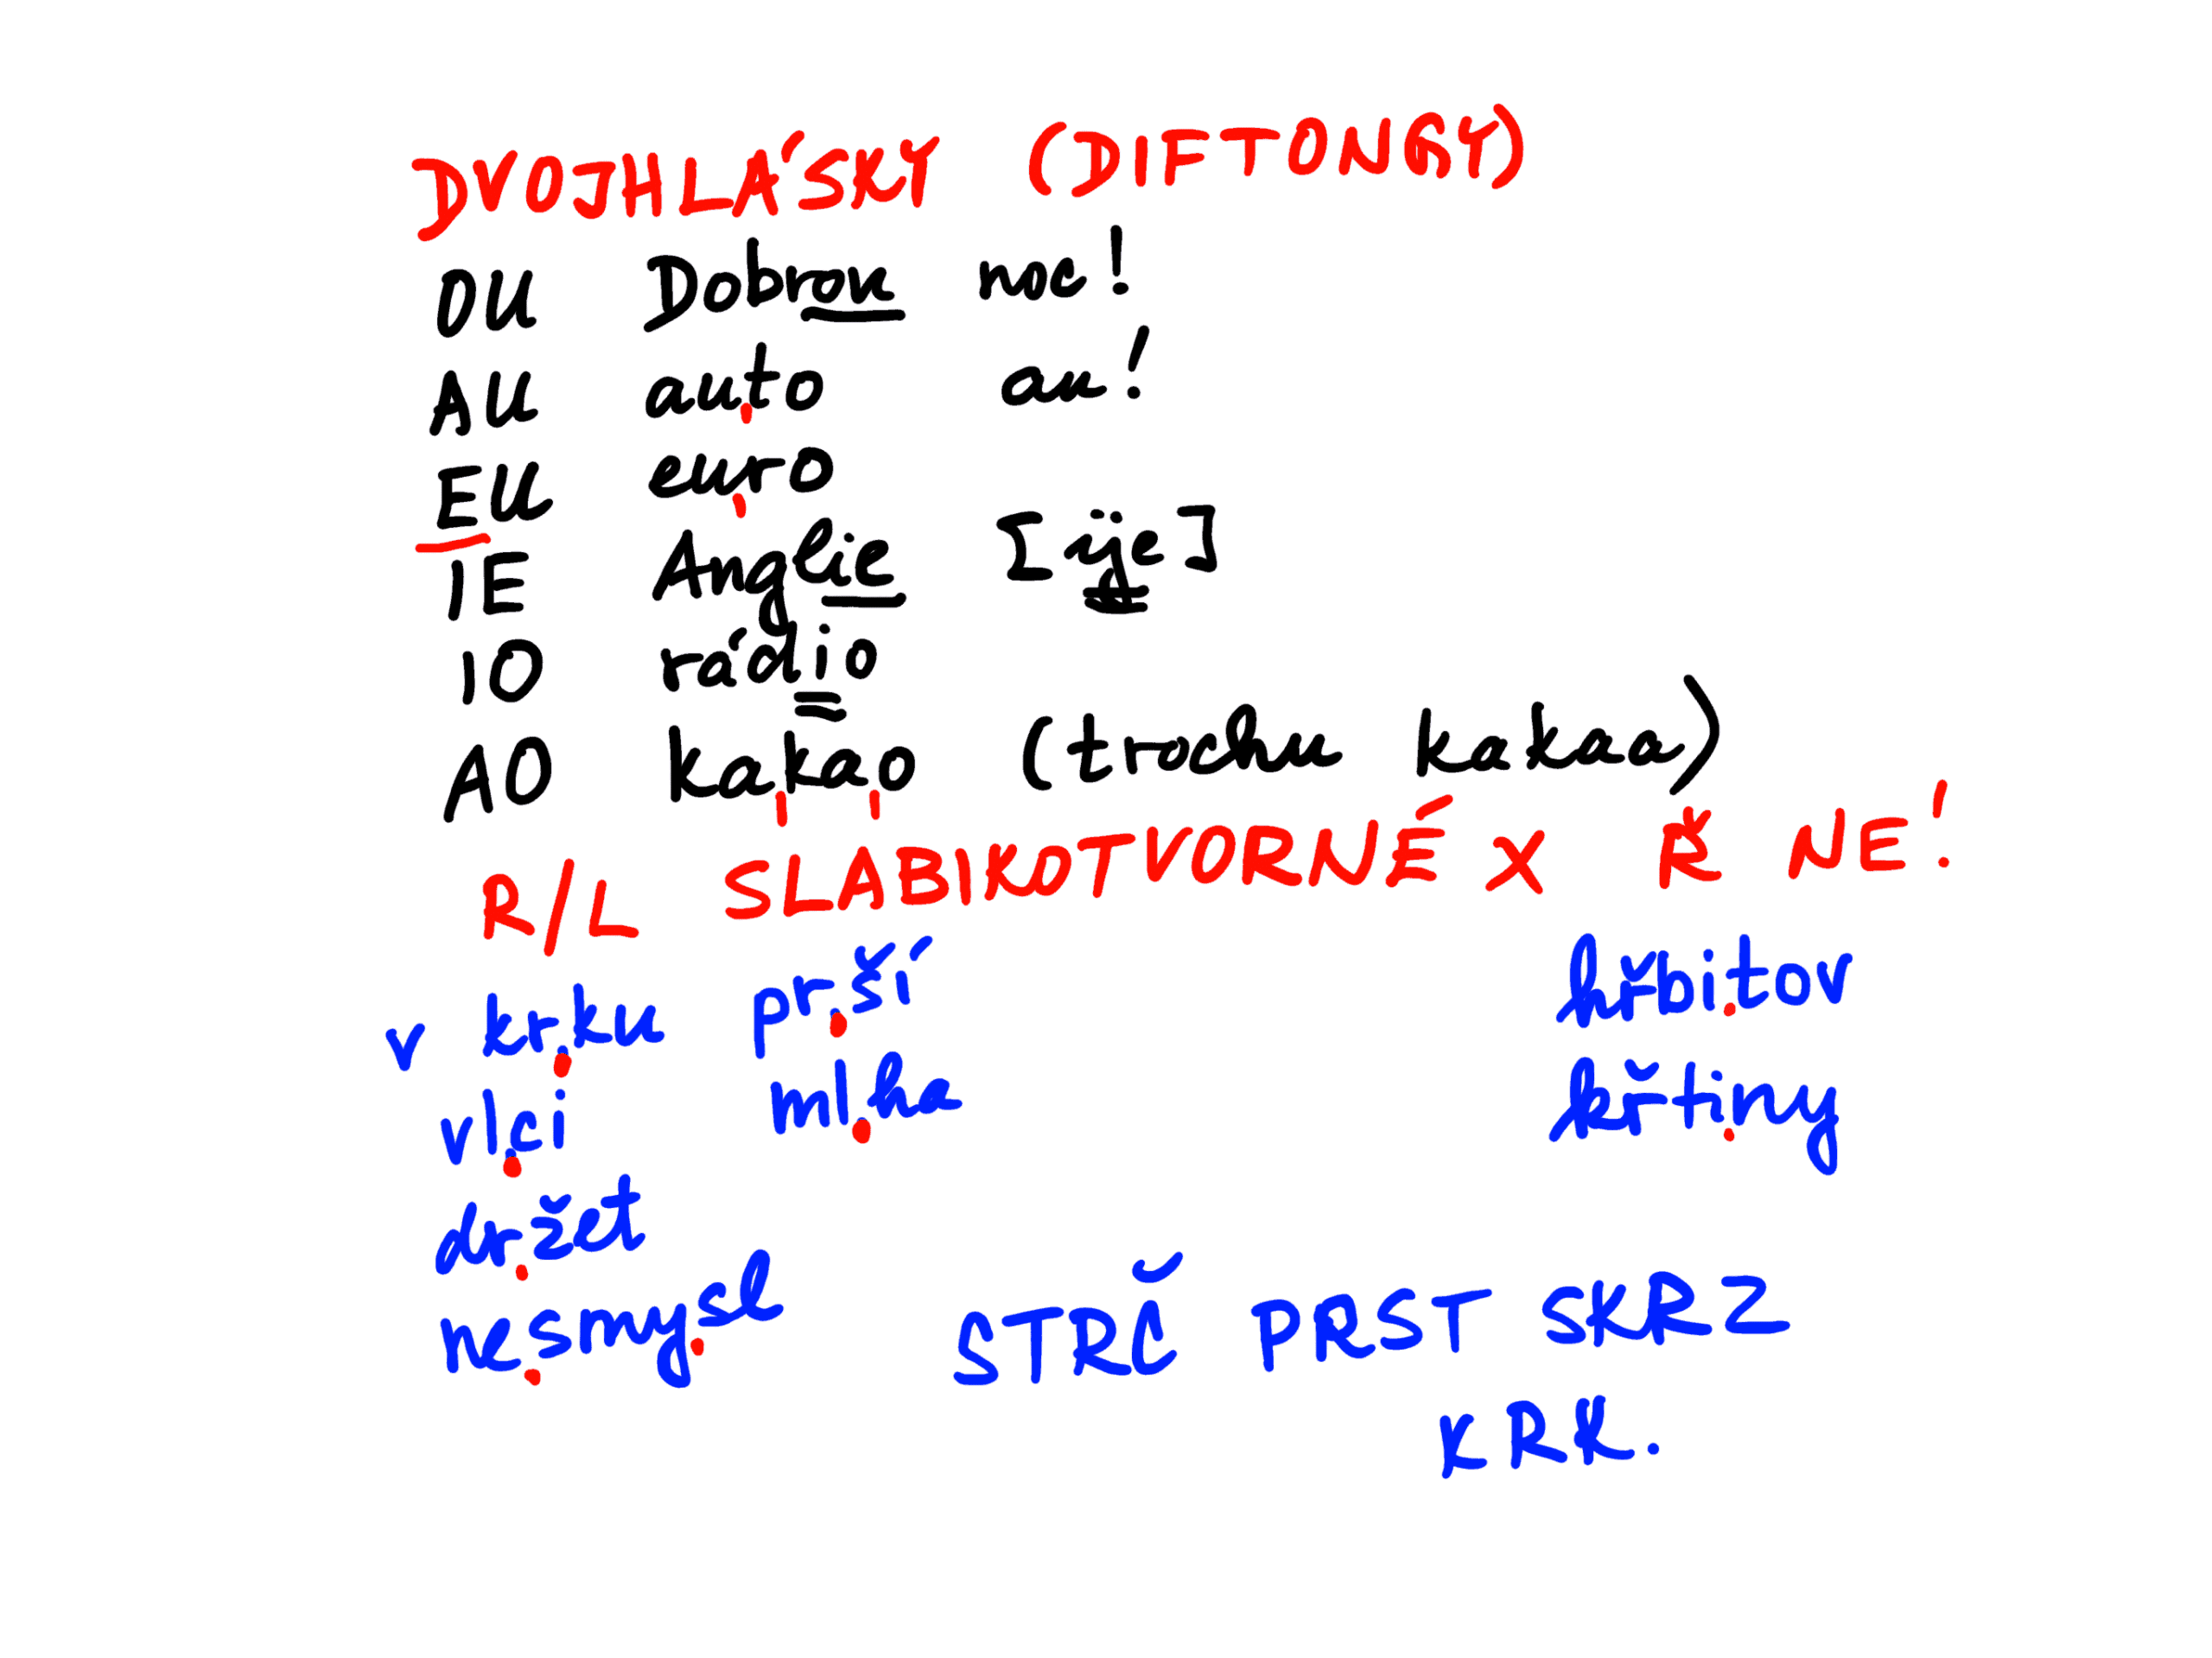 DVOJHLÁSKY (DIFTONGY)
OU Dobrou noc!
AU au,to au!
EU eu,ro
IE Anglie [ije]
IO rádio
AO ka,ka,o (trochu kakaa)
R/L SLABIKOTVORNÉ X Ř NE!
v kr.ku pr.ší hřbi.tov
vl.ci ml.ha křti.ny
dr.žet
ne.smy.sl STRČ PRST SKRZ
KRK.